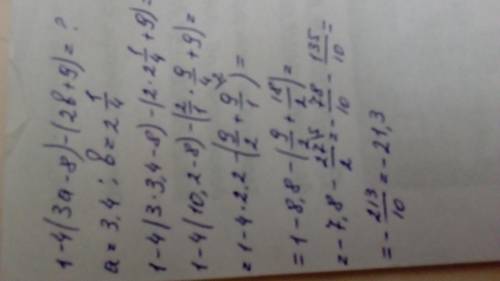 1-4(3a-8)-(2b+9)=?
a=3,4; b=2 1/4
1-4(3·3,4-8)-(2·2 1/4+9)=
1-4(10,2-8)-(2/1·9/4+9)=
=1-4·2,2-(9/2+9/1)=
=1-8,8-(9/2+18/2)=
=-7,8-27/2=-78/10-135/10=
=-213/10=-21,3